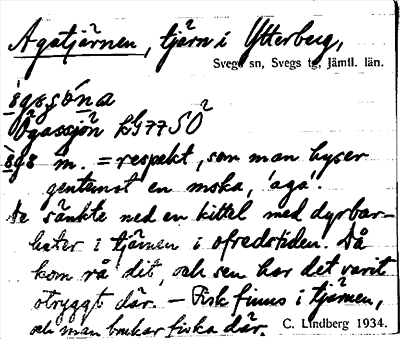 Agatjärnen, tjärn i Ytterberg,
Svegs sn, Svegs tg, Jämtl. län.
Ögassjön LG77SO
m. = respekt, som man hyser
gentemot en mska, 'aga'.
De sänkte ned en kittel med dyrbar-
heter i tjärnen i ofredstiden. Då
kom rå dit, och sen har det varit
otryggt där. – Fisk finns i tjärnen,
och man brukar fiska där. C. Lindberg 1934.